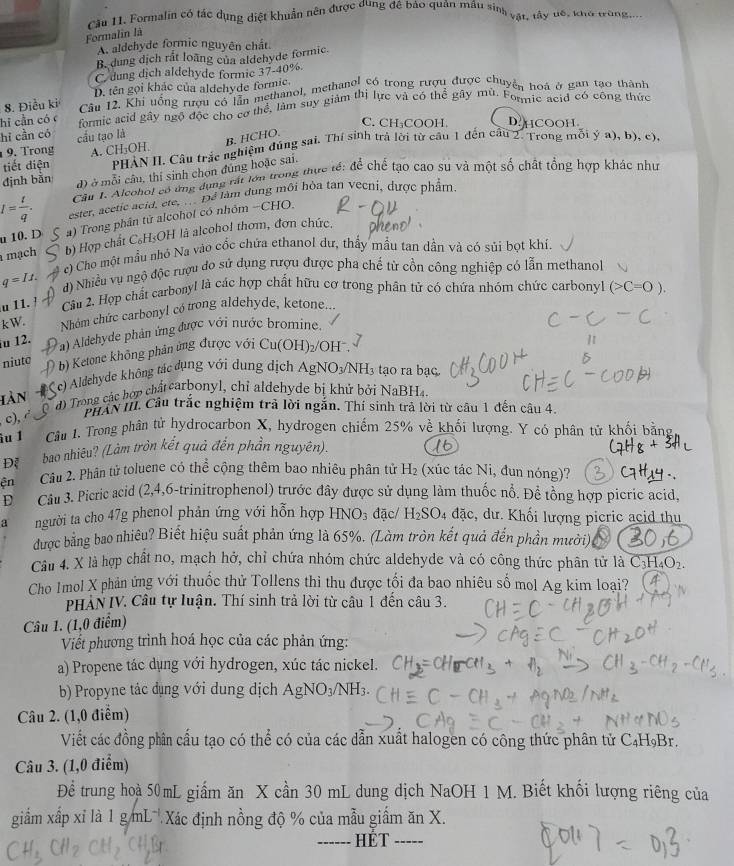 Câu 11. Formalin có tác dụng diệt khuẩn nên được dùng để bảo quản mẫu sinh vật, tẩy uế, khử trùng,...
Formalin là
A. aldehyde formic nguyên chất.
B. dung dịch rất loãng của aldehyde formic.
C. dung dịch aldehyde formic 37-40%.
D. tên gọi khác của aldehyde formic.
8. Điều ki
Câu 12. Khi uống rượu có lẫn methanol, methanol có trong rượu được chuyển hoá ở gan tạo thành
hỉ cần có
formic acid gây ngộ độc cho cơ thể, làm suy giảm thị lực và có thể gây mù. Formic acid có công thức
hỉ cần có
cấu tạo là
A. CH₃OH. B. HCHO. C. CH₃COOH. D. HCOOH.
9. Trong
tiết diện
PHẦN II. Câu trắc nghiệm đúng sai. Thí sinh trả lời từ câu 1 đến câu 2. Trong mỗi ý a), b), c),
định bằn
d) ở mỗi câu, thí sinh chọn đúng hoặc sai.
Câu 1. Alcohol có ứng dụng rất lớn trong thực tế: để chế tạo cao su và một số chất tổng hợp khác như
I = t/q.
ester, acetic acid, etc, … Để làm dung môi hòa tan vecni, dược phẩm.
u 10. D
S a) Trong phân tử alcohol có nhóm –CHO. R - OH
mạch
S b) Hợp chất C₆H₅OH là alcohol thơm, đơn chức. phenol
q = I.t.
c) Cho một mẩu nhỏ Na vào cốc chứa ethanol dư, thấy mẩu tan dần và có sủi bọt khí.
d) Nhiều vụ ngộ độc rượu do sử dụng rượu được pha chế từ cồn công nghiệp có lẫn methanol
u 11.
Câu 2. Hợp chất carbonyl là các hợp chất hữu cơ trong phân tử có chứa nhóm chức carbonyl (>C=O ).
kW.
Nhóm chức carbonyl có trong aldehyde, ketone... C - C - C
u 12.
Đ a) Aldehyde phản ứng được với nước bromine.
niuto
Đ b) Ketone không phản ứng được với Cu(OH)₂/OH⁻.
S c) Aldehyde không tác dụng với dung dịch AgNO₃/NH₃ tạo ra bạc. CH₃COOH CH≡C - COOH
HẦN
d) Trong các hợp chất carbonyl, chỉ aldehyde bị khử bởi NaBH₄.
, c),
PHẦN III. Câu trắc nghiệm trả lời ngắn. Thí sinh trả lời từ câu 1 đến câu 4.
âu 1
Câu 1. Trong phân tử hydrocarbon X, hydrogen chiếm 25% về khối lượng. Y có phân tử khối bằng
bao nhiêu? (Làm tròn kết quả đến phần nguyên). 16 C7H8 + 3H2
ện
Câu 2. Phân tử toluene có thể cộng thêm bao nhiêu phân tử H₂ (xúc tác Ni, đun nóng)? 3 C7H14.
Đ
Câu 3. Picric acid (2,4,6-trinitrophenol) trước đây được sử dụng làm thuốc nổ. Để tổng hợp picric acid,
a
người ta cho 47g phenol phản ứng với hỗn hợp HNO₃ đặc/ H₂SO₄ đặc, dư. Khối lượng picric acid thu
được bằng bao nhiêu? Biết hiệu suất phản ứng là 65%. (Làm tròn kết quả đến phần mười) 30,6
Câu 4. X là hợp chất no, mạch hở, chỉ chứa nhóm chức aldehyde và có công thức phân tử là C₃H₄O₂.
Cho 1mol X phản ứng với thuốc thử Tollens thì thu được tối đa bao nhiêu số mol Ag kim loại? 4
PHẦN IV. Câu tự luận. Thí sinh trả lời từ câu 1 đến câu 3.
Câu 1. (1,0 điểm)
Viết phương trình hoá học của các phản ứng: → CAg≡C - CH2OH
a) Propene tác dụng với hydrogen, xúc tác nickel. CH2=CH-CH3 + H2 Ni→ CH3-CH2-CH3.
b) Propyne tác dụng với dung dịch AgNO₃/NH₃. CH≡C - CH3 + AgNO3/NH3
Câu 2. (1,0 điểm) → CAg≡C - CH3 + NH4NO3
Viết các đồng phân cấu tạo có thể có của các dẫn xuất halogen có công thức phân tử C₄H₉Br.
Câu 3. (1,0 điểm)
Để trung hoà 50mL giấm ăn X cần 30 mL dung dịch NaOH 1 M. Biết khối lượng riêng của
giấm xấp xỉ là 1 g/mL⁻¹. Xác định nồng độ % của mẫu giấm ăn X.
------ HẾT -----
CH3 CH2 CH2 CH2Br = 0,3